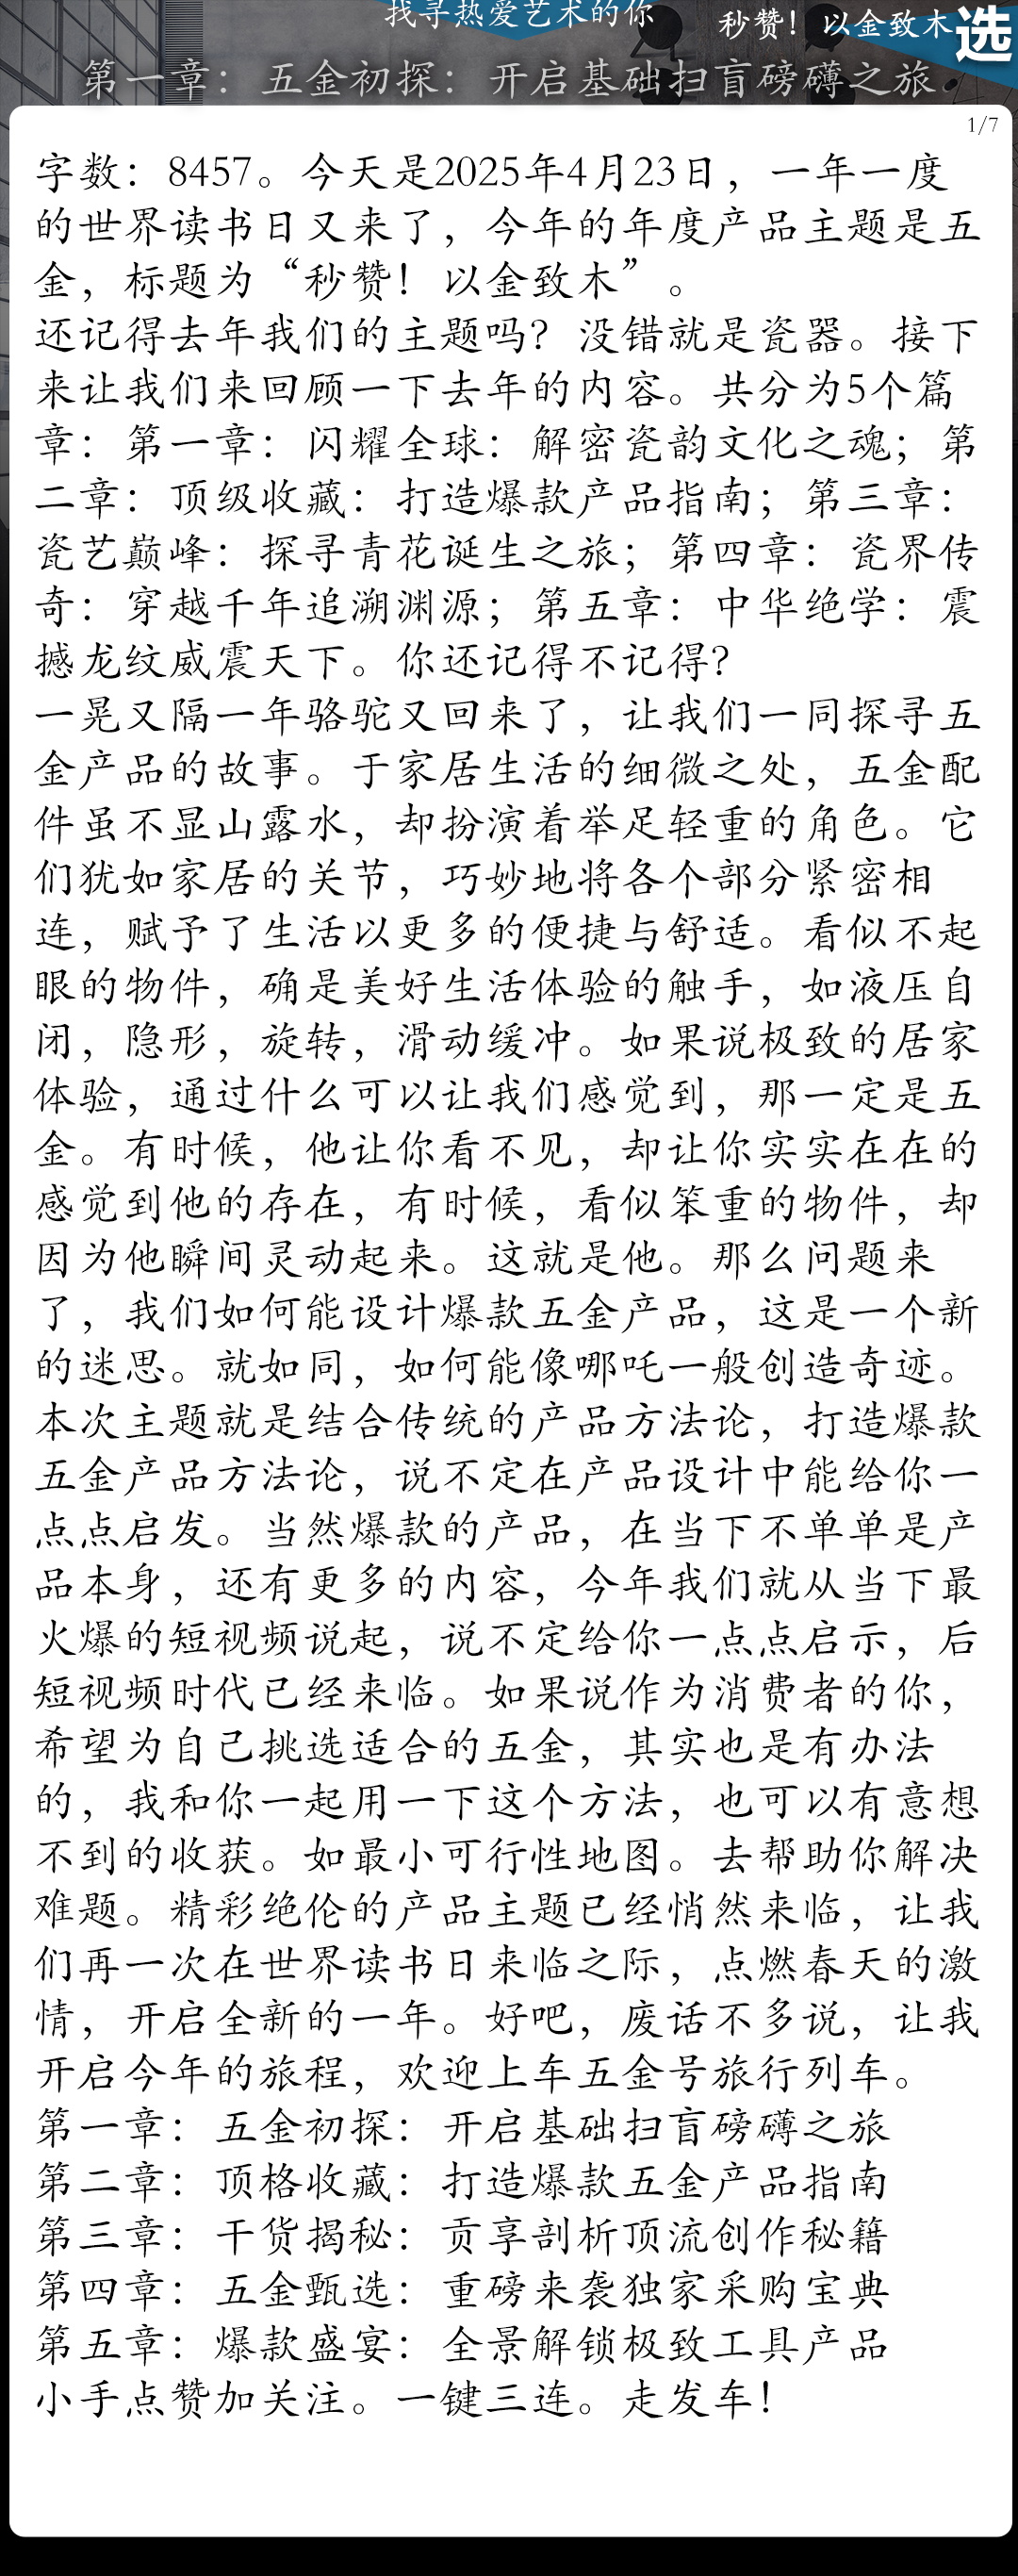 找寻热爱艺术的你
秒赞！以金致木
选
第一章：五金初探：开启基础扫盲磅礴之旅
1/7
字数：8457。今天是2025年4月23日，一年一度
的世界读书日又来了，今年的年度产品主题是五
金，标题为“秒赞！以金致木”。
还记得去年我们的主题吗？没错就是瓷器。接下
来让我们来回顾一下去年的内容。共分为5个篇
章：第一章：闪耀全球：解密瓷韵文化之魂；第
二章：顶级收藏：打造爆款产品指南；第三章：
瓷艺巅峰：探寻青花诞生之旅；第四章：瓷界传
奇：穿越千年追溯渊源；第五章：中华绝学：震
撼龙纹威震天下。你还记得不记得？
一晃又隔一年骆驼又回来了，让我们一同探寻五
金产品的故事。于家居生活的细微之处，五金配
件虽不显山露水，却扮演着举足轻重的角色。它
们犹如家居的关节，巧妙地将各个部分紧密相
连，赋予了生活以更多的便捷与舒适。看似不起
眼的物件，确是美好生活体验的触手，如液压自
闭，隐形，旋转，滑动缓冲。如果说极致的居家
体验，通过什么可以让我们感觉到，那一定是五
金。有时候，他让你看不见，却让你实实在在的
感觉到他的存在，有时候，看似笨重的物件，却
因为他瞬间灵动起来。这就是他。那么问题来
了，我们如何能设计爆款五金产品，这是一个新
的迷思。就如同，如何能像哪吒一般创造奇迹。
本次主题就是结合传统的产品方法论，打造爆款
五金产品方法论，说不定在产品设计中能给你一
点点启发。当然爆款的产品，在当下不单单是产
品本身，还有更多的内容，今年我们就从当下最
火爆的短视频说起，说不定给你一点点启示，后
短视频时代已经来临。如果说作为消费者的你，
希望为自己挑选适合的五金，其实也是有办法
的，我和你一起用一下这个方法，也可以有意想
不到的收获。如最小可行性地图。去帮助你解决
难题。精彩绝伦的产品主题已经悄然来临，让我
们再一次在世界读书日来临之际，点燃春天的激
情，开启全新的一年。好吧，废话不多说，让我
开启今年的旅程，欢迎上车五金号旅行列车。
第一章：五金初探：开启基础扫盲磅礴之旅
第二章：顶格收藏：打造爆款五金产品指南
第三章：干货揭秘：贡享剖析顶流创作秘籍
第四章：五金甄选：重磅来袭独家采购宝典
第五章：爆款盛宴：全景解锁极致工具产品
小手点赞加关注。一键三连。走发车！